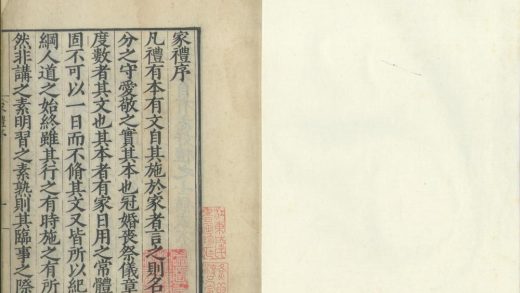 家禮序
凡禮有本有文自其施於家者言之則名
分之守愛敬之實其本也冠婚喪祭儀章
度數者其文也其本者有家日用之常體
固不可以一日而不脩其文又皆所以紀
綱人道之始終雖其行之有時施之有所
然非講之素明習之素熟則其臨事之際